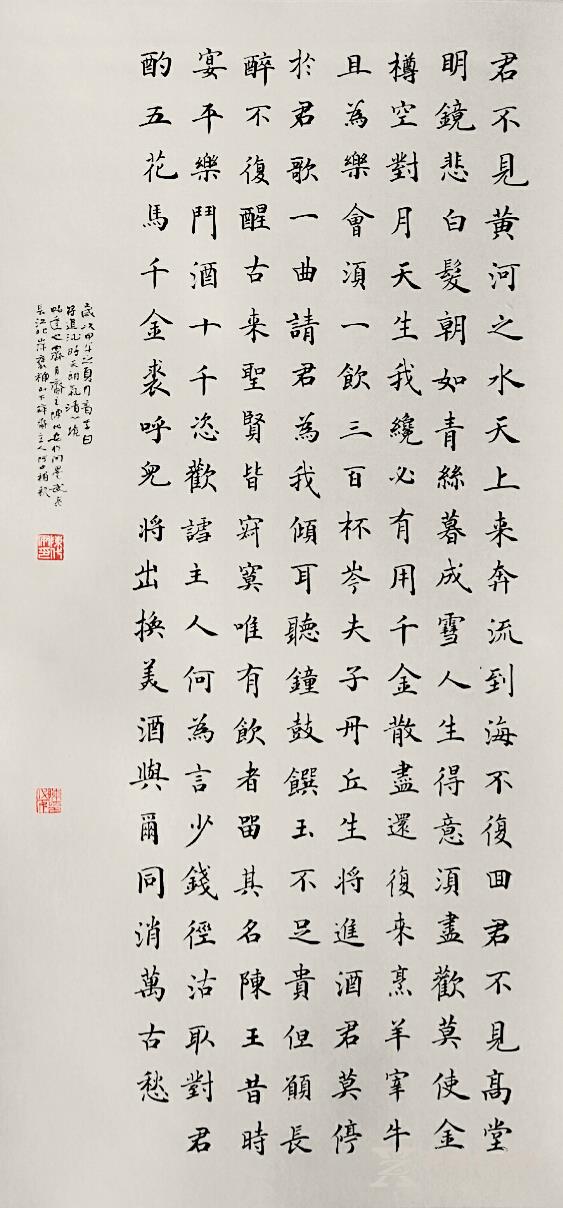 君不見黃河之水天上来奔流到海不復回君不見高堂
明鏡悲白髮朝如青絲暮成雪人生得意須盡歡莫使金
樽空對月天生我纔必有用千金散盡還復来烹羊宰牛
且為樂會須一飲三百杯岑夫子丹丘生將進酒君莫停
於君歌一曲請君為我傾耳聽鐘鼓饌玉不足貴但願長
醉不復醒古来聖賢皆寂寞唯有飲者留其名陳王昔時
宴平樂鬥酒十千恣歡謔主人何為言少錢徑沽取對君
酌五花馬千金裘呼兒將出換美酒與爾同消萬古愁
歲次甲午之夏月